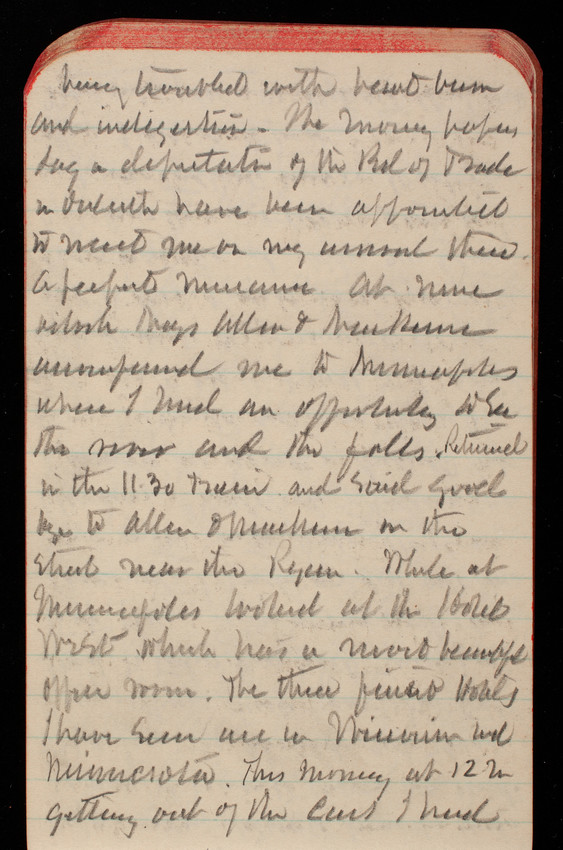 being troubled with heart burn
and indigestion. The morning papers
say a deputation of the Bd of Trade
in Duluth have been appointed
to meet me on my arrival there.
A perfect nuisance. At nine
o'clock Mays Allen &
accompanied me to Minneapolis
where I had an opportunity to see
the river and the falls. Returned
in the 11.30 train and said good
bye to Allen & on the
street near the Ryan. While at
Minneapolis looked at the Hotel
West which has a most beautiful
office room. The three finest Hotels
I have seen are in Wisconsin and
Minnesota. This morning at 12 M
getting out of the cars I had